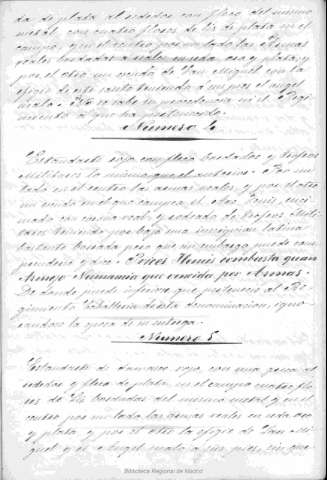 da de plata al rededor con fleco del mismo
metal, con cuatro flores de lis de plata en el
campo, y en el centro por un lado las Armas
reales bordadas a realce en seda, oro y plata, y
por el otro un escudo de San Miguel con la
efigie de este santo teniendo a sus pies el angel
malo. No se sabe su procedencia ni el Regi-
miento a que ha pertenecido.
Numero 4
Estandarte rojo con fleco bordados y trofeos
Militares lo mismo que el anterior. Por un
lado en el centro las armas reales, y por el otro
un escudo en el que campea el
mado con corona real y rodeado de trofeos Mili-
tares teniendo por bajo una inscripcion latina
bastante borrada pero que sin embargo puede com-
prenderse y dice. Prius Flamis combusta quam
Armis Numancia que vencida por Armas.
De donde puede inferirse que perteneció al Re-
gimiento Caballeria de esta denominacion, igno-
randose la epoca de su entrega.
Numero 5
Estandarte de Damasco rojo, con una greca al
rededor y fleco de plata, en el campo cuatro flo-
res de Lis bordadas del mismo metal y en el
centro por un lado las armas reales en seda oro
y plata, y por el otro la efigie de San Mi-
guel y el Angel malo a sus pies, sin que
Biblioteca Regional de Madrid